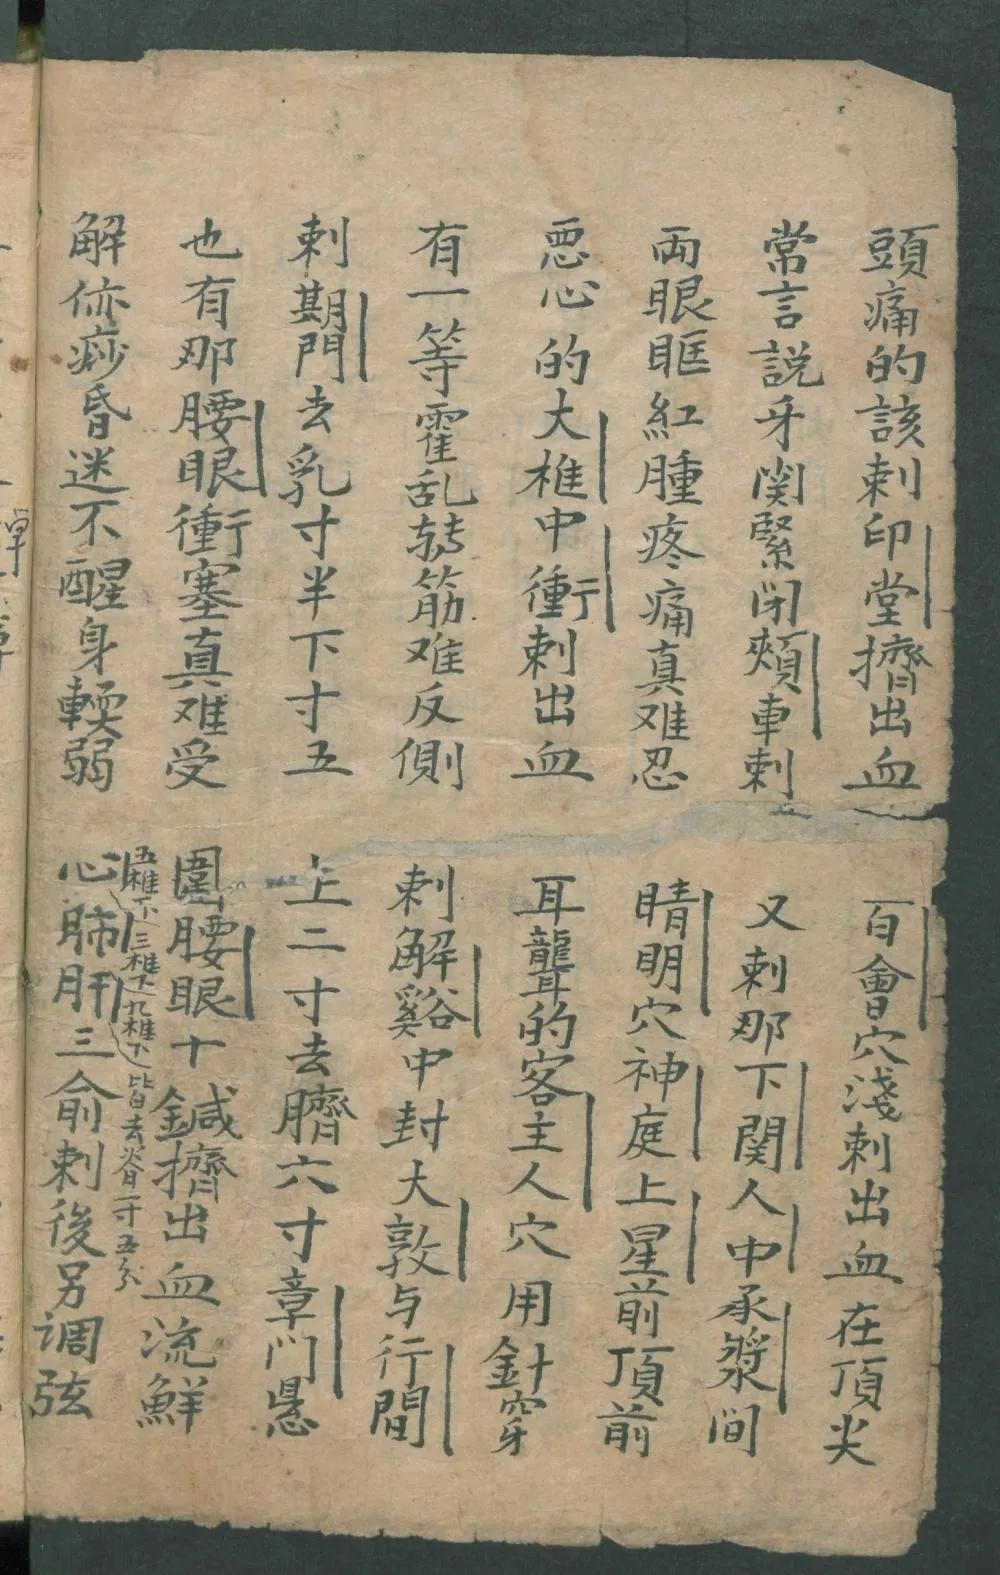 頭痛的該刺印堂擠出血　百會穴淺刺出血在頂尖
常言説牙関緊闭頰車刺　又刺那下関人中承漿间
両眼眶紅腫疼痛真难忍　睛明穴神庭上星前頂前
恶心的大椎中衝刺出血　耳聾的客主人穴用針穿
有一等霍乱转筋难反側　刺解谿中封大敦与行間
刺期門去乳寸半下寸五　上二寸去臍六寸章门悬
也有那腰眼衝塞真难受　圍腰眼十鍼擠出血流鮮
五椎下三椎下九椎下皆去脊一寸五分
解㑊痧昏迷不醒身輭弱　心肺肝三俞刺後另调弦